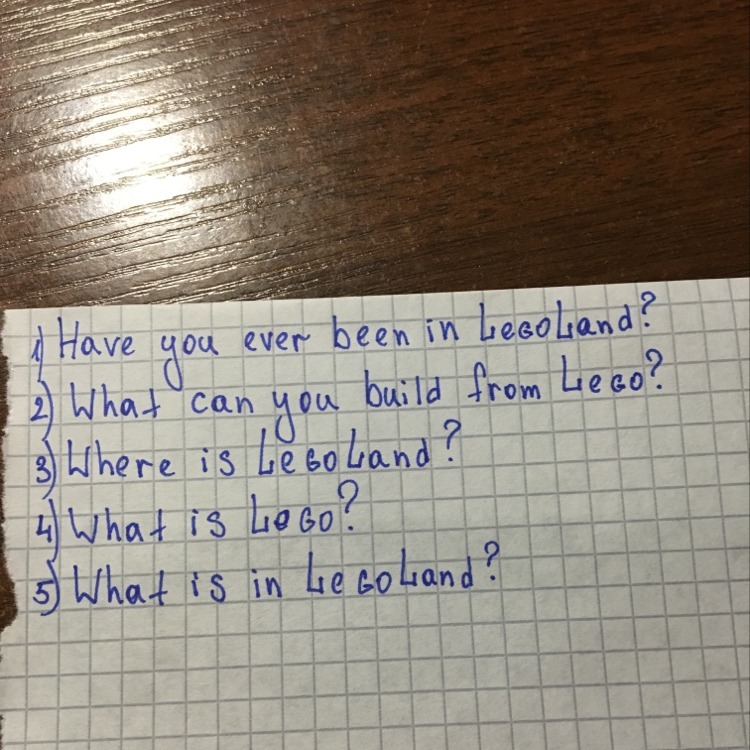 1) Have you ever been in LegoLand?
2) What can you build from Lego?
3) Where is LegoLand?
4) What is Lego?
5) What is in LegoLand?